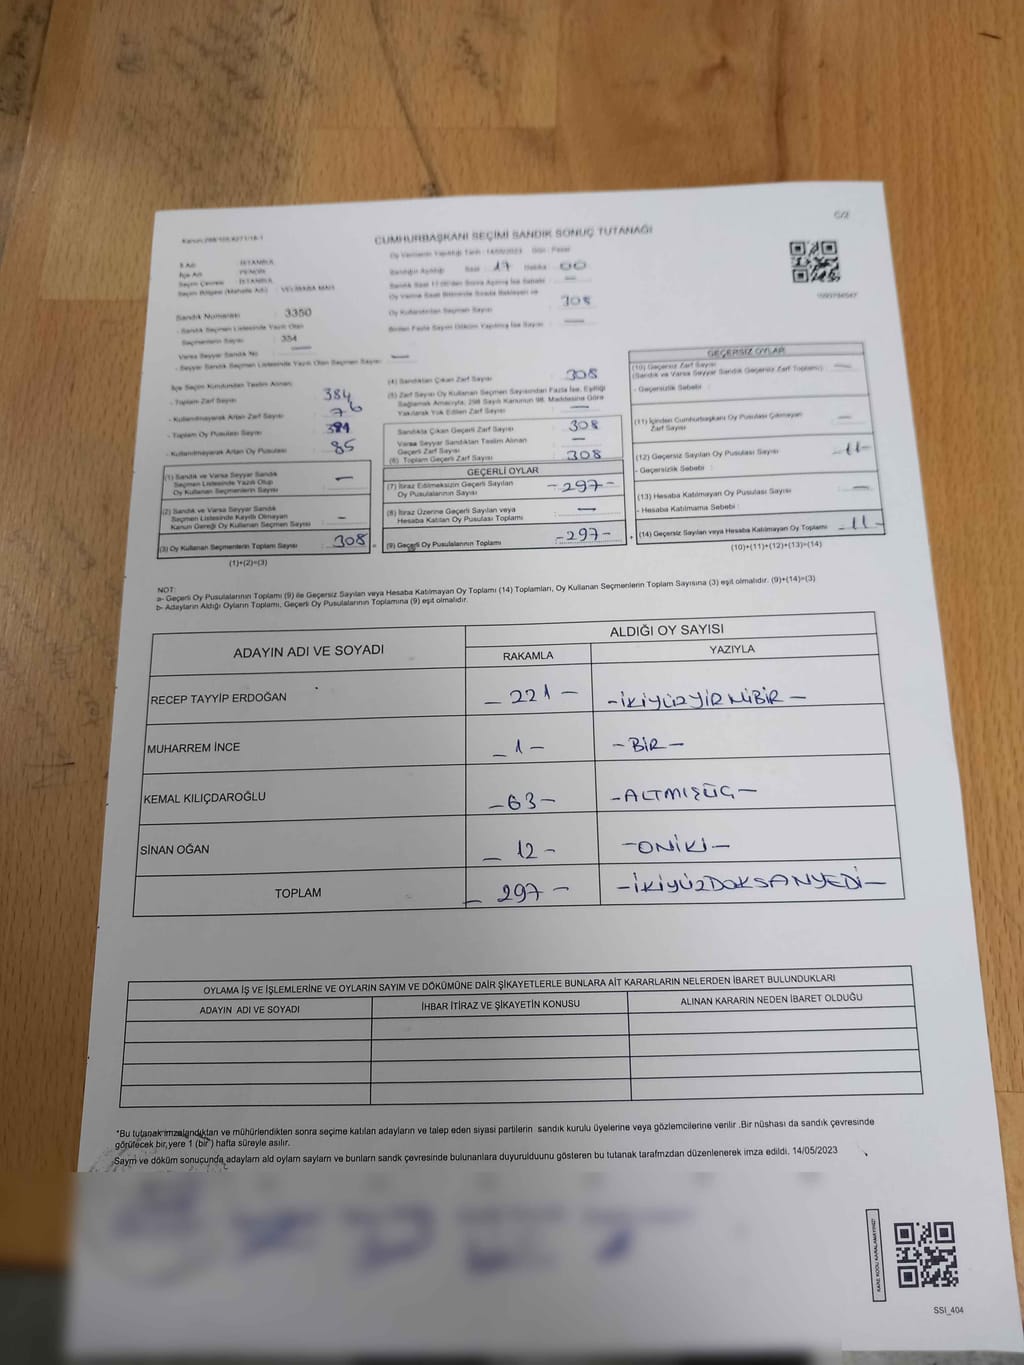 C/2
Kanun:298/105,6271/18-1
CUMHURBAŞKANI SEÇİMİ SANDIK SONUÇ TUTANAĞI
Oy Vermenin Yapıldığı Tarih : 14/05/2023 Gün : Pazar
İl Adı : İSTANBUL
İlçe Adı : PENDİK
Seçim Çevresi : İSTANBUL
Seçim Bölgesi (Mahalle Adı) : VELİBABA MAH.
Sandığın Açıldığı Saat : 17 Dakika : 00
Sandık Saat 17:00'den Sonra Açılmış İse Sebebi : —
Oy Verme Saati Bitiminde Sırada Bekleyen ve
Oy Kullandırılan Seçmen Sayısı : 308
Birden Fazla Sayım Döküm Yapılmış İse Sayısı : —
Sandık Numarası : 3350
- Sandık Seçmen Listesinde Yazılı Olan
Seçmenlerin Sayısı : 354
Varsa Seyyar Sandık No : —
- Seyyar Sandık Seçmen Listesinde Yazılı Olan Seçmen Sayısı : —
İlçe Seçim Kurulundan Teslim Alınan
- Toplam Zarf Sayısı : 384
- Kullanılmayarak Artan Zarf Sayısı : 76
- Toplam Oy Pusulası Sayısı :
- Kullanılmayarak Artan Oy Pusulası : 85
(1) Sandık ve Varsa Seyyar Sandık
Seçmen Listesinde Yazılı Olup
Oy Kullanan Seçmenlerin Sayısı : —
(2) Sandık ve Varsa Seyyar Sandık
Seçmen Listesinde Kayıtlı Olmayan
Kanun Gereği Oy Kullanan Seçmen Sayısı : —
(3) Oy Kullanan Seçmenlerin Toplam Sayısı : 308
(1)+(2)=(3)
(4) Sandıktan Çıkan Zarf Sayısı : 308
(5) Zarf Sayısı Oy Kullanan Seçmen Sayısından Fazla İse, Eşitliği
Sağlamak Amacıyla, 298 Sayılı Kanunun 98. Maddesine Göre
Yakılarak Yok Edilen Zarf Sayısı : —
Sandıkta Çıkan Geçerli Zarf Sayısı : 308
Varsa Seyyar Sandıktan Teslim Alınan
Geçerli Zarf Sayısı : —
(6) Toplam Geçerli Zarf Sayısı : 308
GEÇERLİ OYLAR
(7) İtiraz Edilmeksizin Geçerli Sayılan
Oy Pusulalarının Sayısı : -297-
(8) İtiraz Üzerine Geçerli Sayılan veya
Hesaba Katılan Oy Pusulası Toplamı : —
(9) Geçerli Oy Pusulalarının Toplamı : -297-
GEÇERSİZ OYLAR
(10) Geçersiz Zarf Sayısı : —
(Sandık ve Varsa Seyyar Sandık Geçersiz Zarf Toplamı)
- Geçersizlik Sebebi :
(11) İçinden Cumhurbaşkanı Oy Pusulası Çıkmayan
Zarf Sayısı : —
(12) Geçersiz Sayılan Oy Pusulası Sayısı : -11-
- Geçersizlik Sebebi :
(13) Hesaba Katılmayan Oy Pusulası Sayısı : —
- Hesaba Katılmama Sebebi :
(14) Geçersiz Sayılan veya Hesaba Katılmayan Oy Toplamı : -11-
(10)+(11)+(12)+(13)=(14)
NOT:
a- Geçerli Oy Pusulalarının Toplamı (9) ile Geçersiz Sayılan veya Hesaba Katılmayan Oy Toplamı (14) Toplamları, Oy Kullanan Seçmenlerin Toplam Sayısına (3) eşit olmalıdır. (9)+(14)=(3)
b- Adayların Aldığı Oyların Toplamı, Geçerli Oy Pusulalarının Toplamına (9) eşit olmalıdır.
ADAYIN ADI VE SOYADI ALDIĞI OY SAYISI
RAKAMLA YAZIYLA
RECEP TAYYİP ERDOĞAN - 221 - -İKİYÜZYİRMİBİR-
MUHARREM İNCE - 1 - -BİR-
KEMAL KILIÇDAROĞLU -63- -ALTMIŞÜÇ-
SİNAN OĞAN - 12 - -ONİKİ-
TOPLAM - 297 - -İKİYÜZDOKSANYEDİ-
OYLAMA İŞ VE İŞLEMLERİNE VE OYLARIN SAYIM VE DÖKÜMÜNE DAİR ŞİKAYETLERLE BUNLARA AİT KARARLARIN NELERDEN İBARET BULUNDUKLARI
ADAYIN ADI VE SOYADI İHBAR İTİRAZ VE ŞİKAYETİN KONUSU ALINAN KARARIN NEDEN İBARET OLDUĞU
*Bu tutanak imzalandıktan ve mühürlendikten sonra seçime katılan adayların ve talep eden siyasi partilerin sandık kurulu üyelerine veya gözlemcilerine verilir .Bir nüshası da sandık çevresinde
görülecek bir yere 1 (bir ) hafta süreyle asılır.
Sayım ve döküm sonuçunda adaylarn ald oylarn saylarn ve bunlarn sandk çevresinde bulunanlara duyurulduunu gösteren bu tutanak tarafmzdan düzenlenerek imza edildi. 14/05/2023
SSI_404